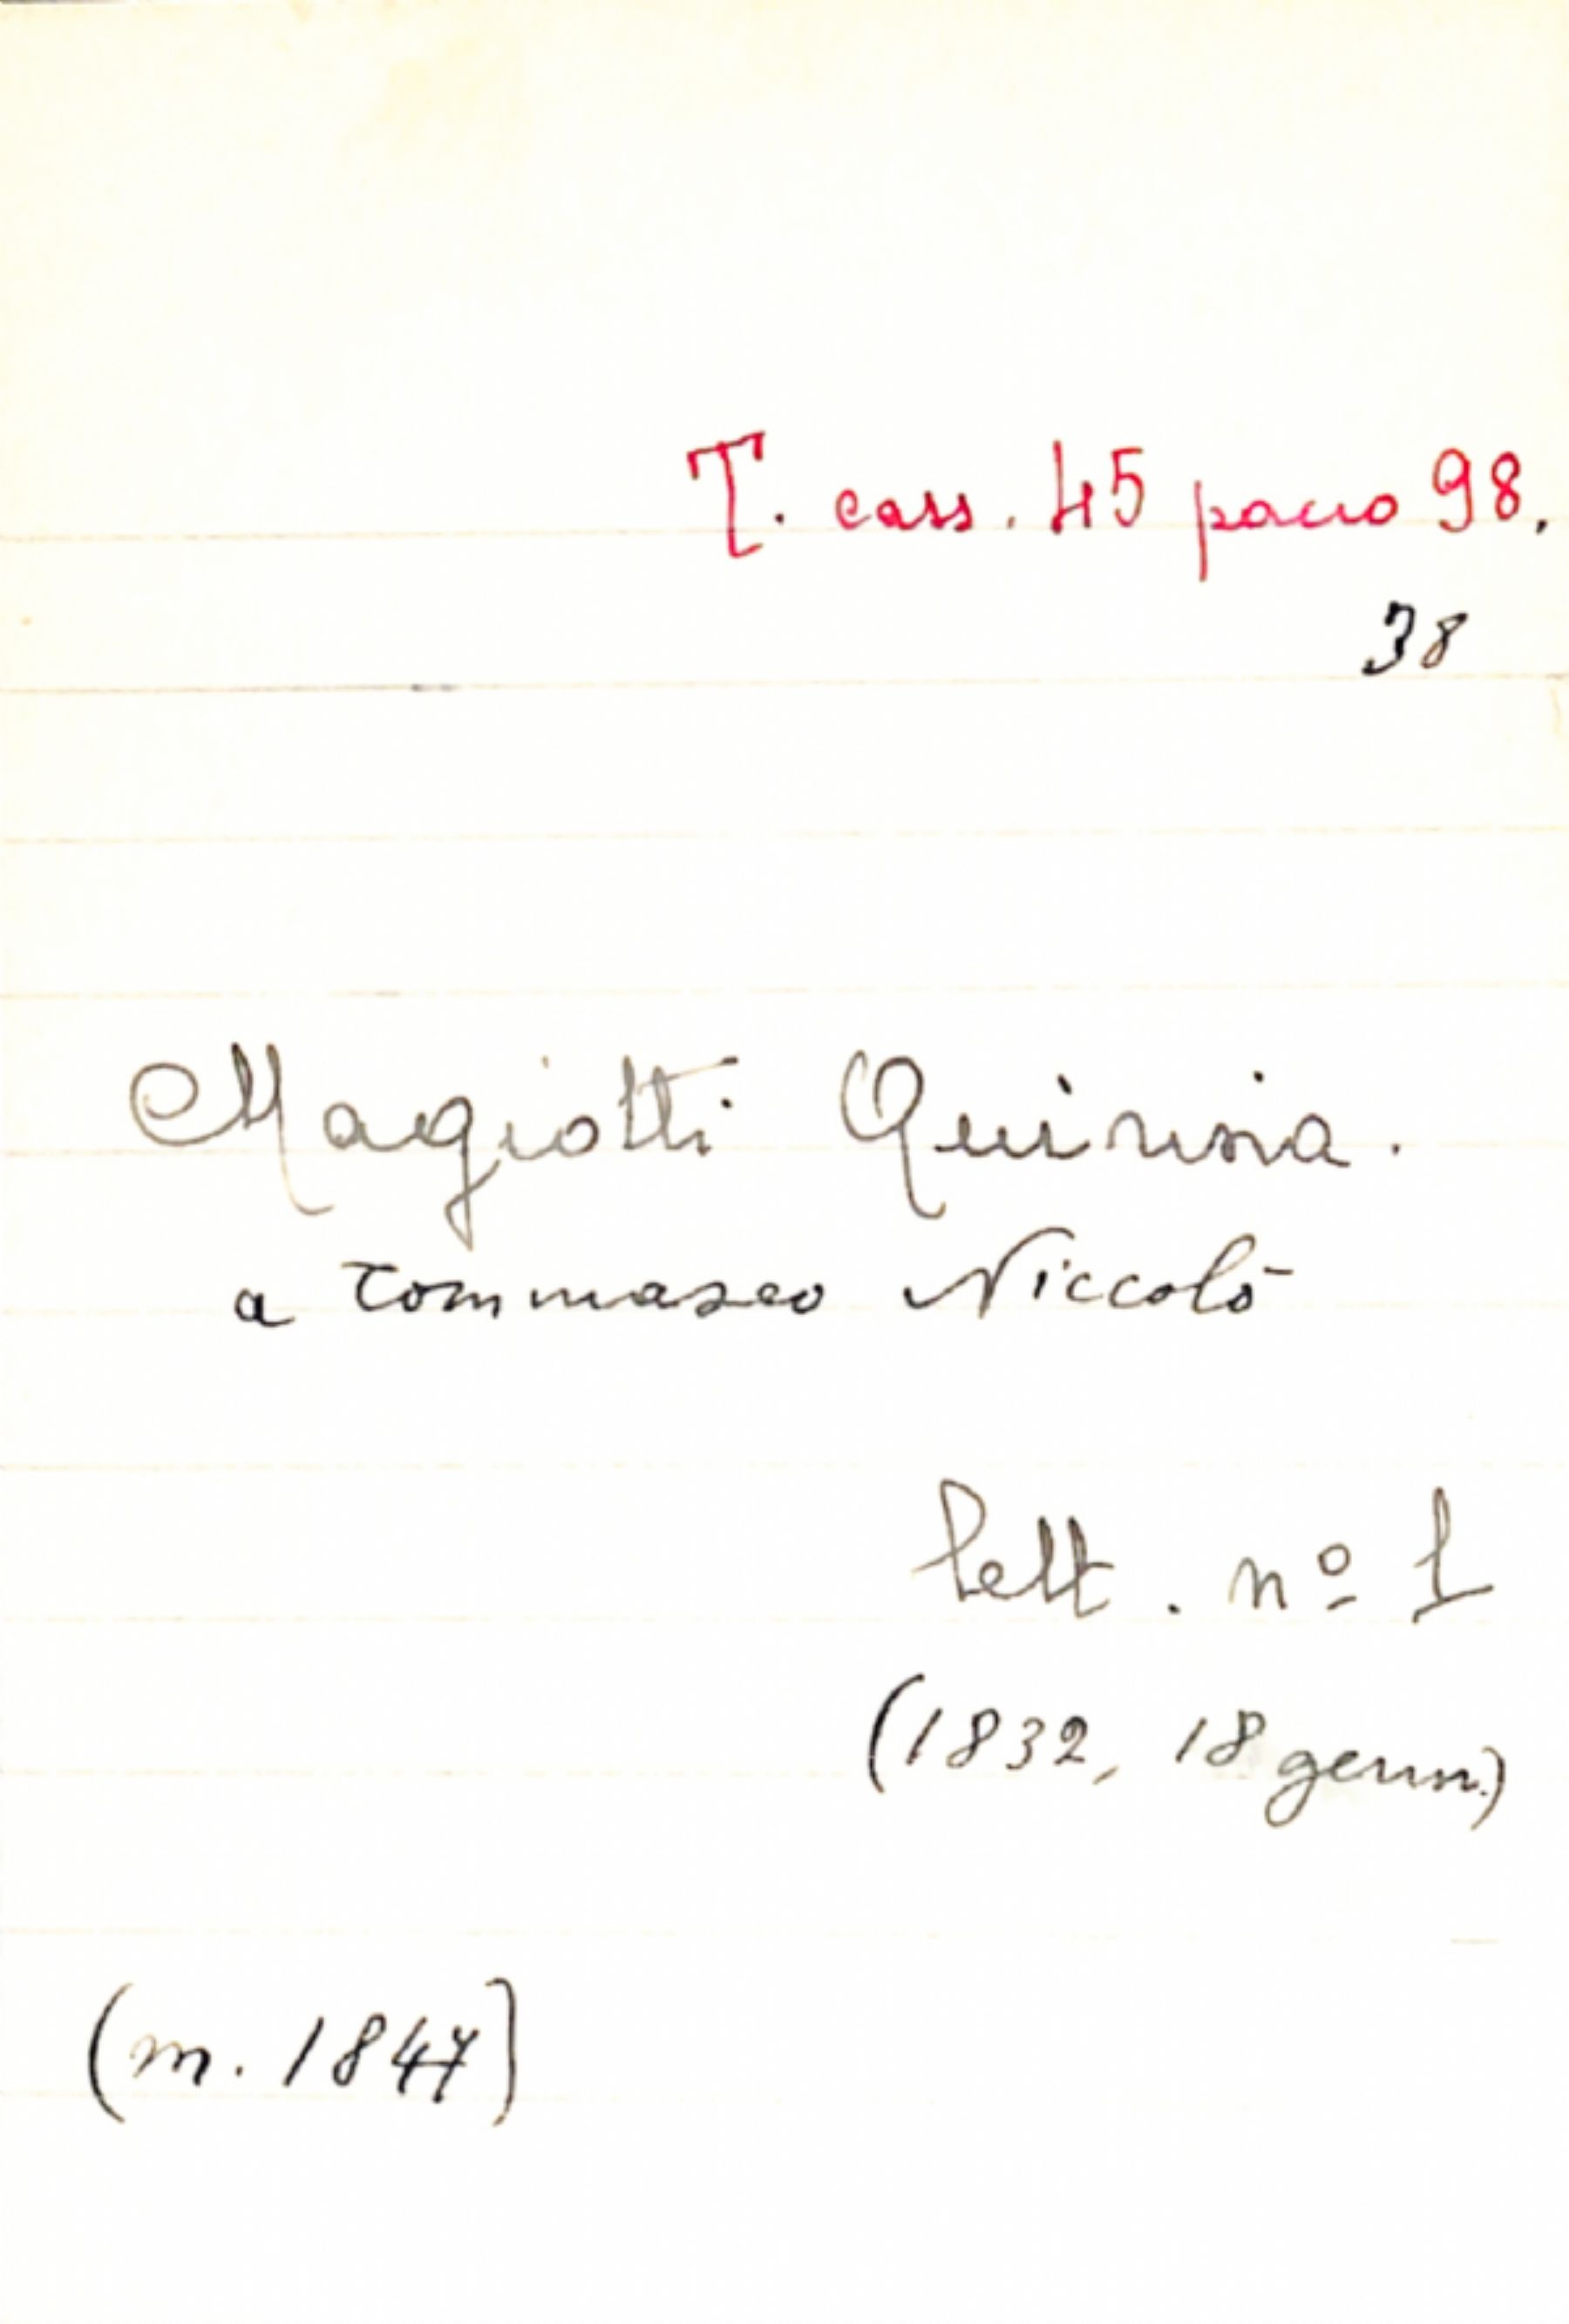 T. cass. 45 pacco 98.
38
Magiotti Quirina.
a Tommaseo Niccolò
lett. nº 1
(1832, 18 genn.)
(m. 1847)